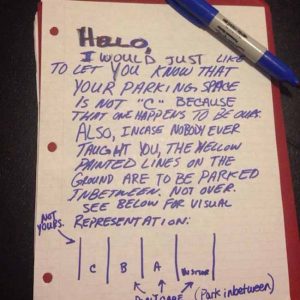 HELLO,
I WOULD JUST LIKE
TO LET YOU KNOW THAT
YOUR PARKING SPACE
IS NOT "C" BECAUSE
THAT ONE HAPPENS TO BE OURS.
ALSO, INCASE NOBODY EVER
TAUGHT YOU, THE YELLOW
PAINTED LINES ON THE
GROUND ARE TO BE PARKED
INBETWEEN. NOT OVER.
SEE BELOW FOR VISUAL
REPRESENTATION:
NOT
YOURS.
C B A VISITOR
(Park inbetween)